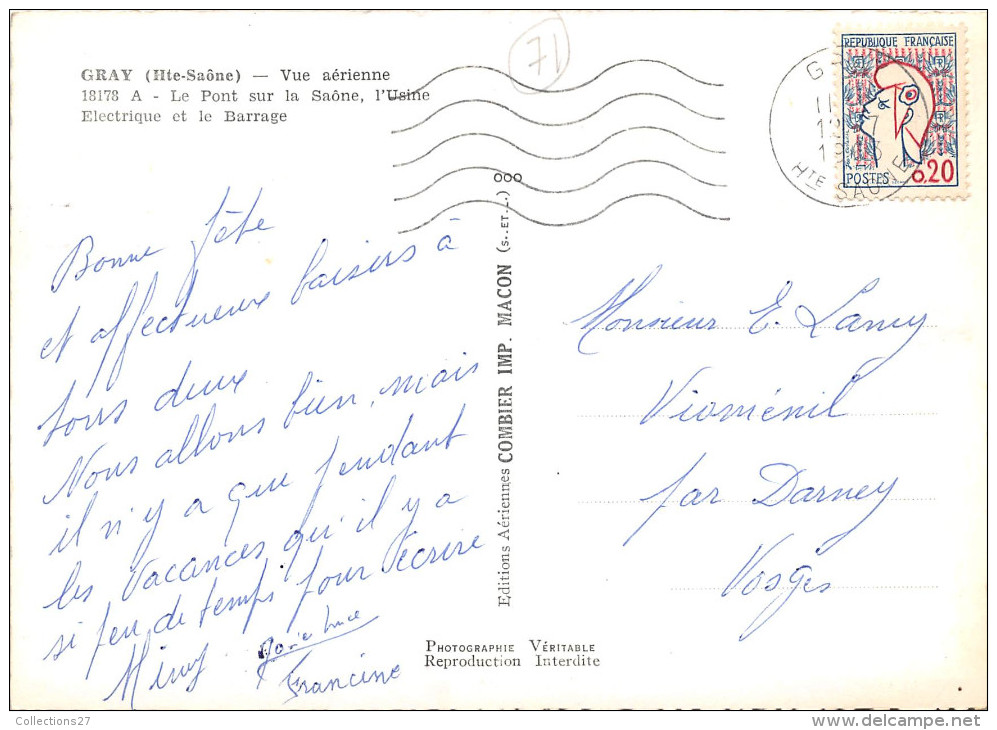 GRAY (Hte-Saône) — Vue aérienne
18178 A - Le Pont sur la Saône, l'Usine
Electrique et le Barrage
71
REPUBLIQUE FRANÇAISE
POSTES 0,20
HTE SAONE
Bonne fête
et affectueux baisers à
tous deux
Nous allons bien, mais
il n'y a que pendant
les vacances qu'il y a
si peu de temps pour écrire
Mimy Marie Luce
Francine
Editions Aériennes COMBIER IMP. MACON (S.-ET-L.)
Monsieur E. Lamy
Vioménil
par Darney
Vosges
PHOTOGRAPHIE VÉRITABLE
Reproduction Interdite
Collections27
delcampe.net